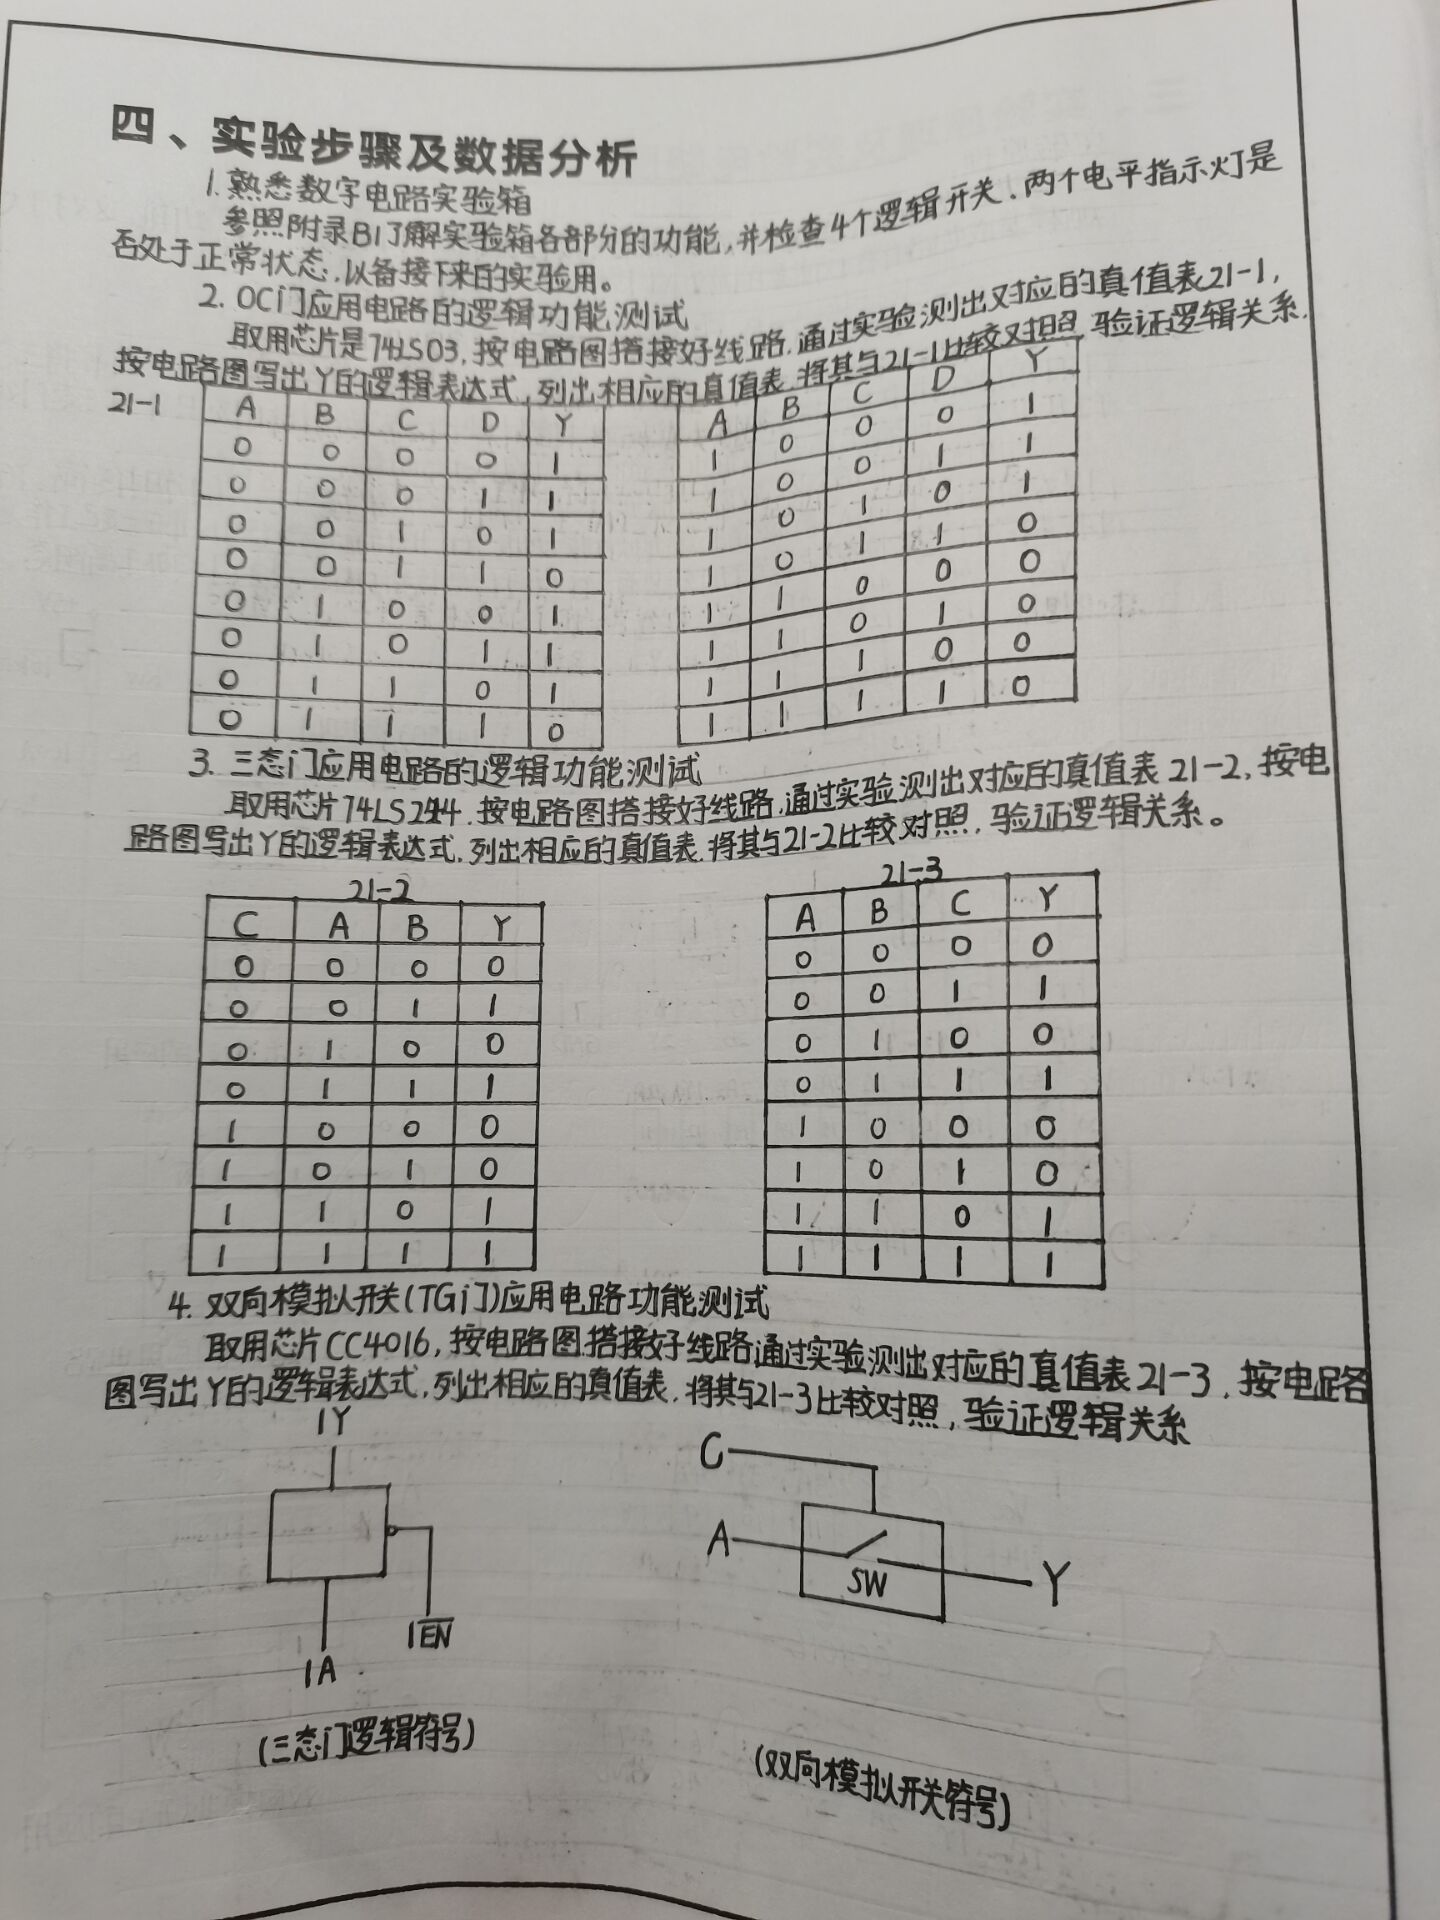 四、实验步骤及数据分析
1. 熟悉数字电路实验箱
参照附录B1了解实验箱各部分的功能,并检查4个逻辑开关、两个电平指示灯是
否处于正常状态,以备接下来的实验用。
2. OC门应用电路的逻辑功能测试
取用芯片是74LS03,按电路图搭接好线路,通过实验测出对应的真值表21-1,
按电路图写出Y的逻辑表达式,列出相应的真值表,将其与21-1比较对照,验证逻辑关系.
21-1
A B C D Y
0 0 0 0 1
0 0 0 1 1
0 0 1 0 1
0 0 1 1 0
0 1 0 0 1
0 1 0 1 1
0 1 1 0 1
0 1 1 1 0
A B C D Y
1 0 0 0 1
1 0 0 1 1
1 0 1 0 1
1 0 1 1 0
1 1 0 0 0
1 1 0 1 0
1 1 1 0 0
1 1 1 1 0
3. 三态门应用电路的逻辑功能测试
取用芯片74LS244,按电路图搭接好线路,通过实验测出对应的真值表21-2,按电
路图写出Y的逻辑表达式,列出相应的真值表,将其与21-2比较对照,验证逻辑关系。
21-2
C A B Y
0 0 0 0
0 0 1 1
0 1 0 0
0 1 1 1
1 0 0 0
1 0 1 0
1 1 0 1
1 1 1 1
21-3
A B C Y
0 0 0 0
0 0 1 1
0 1 0 0
0 1 1 1
1 0 0 0
1 0 1 0
1 1 0 1
1 1 1 1
4. 双向模拟开关(TG门)应用电路功能测试
取用芯片CC4016,按电路图搭接好线路通过实验测出对应的真值表21-3,按电路
图写出Y的逻辑表达式,列出相应的真值表,将其与21-3比较对照,验证逻辑关系
1Y
1EN
1A
(三态门逻辑符号)
C
A
SW
Y
(双向模拟开关符号)